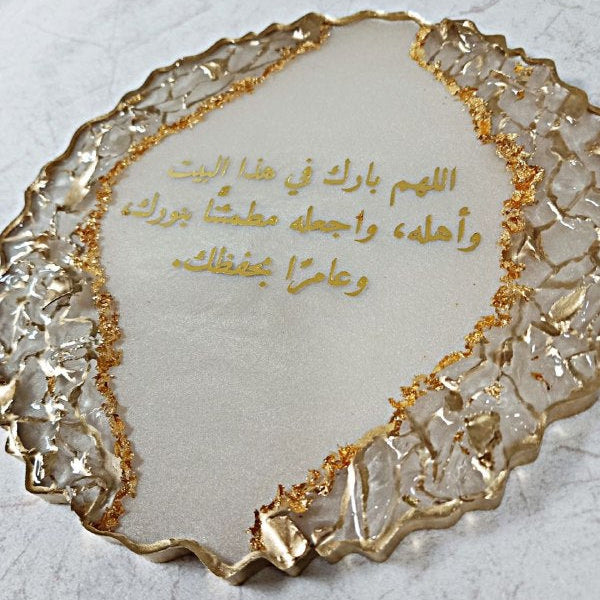 اللهم بارك في هذا البيت
وأهله، واجعله مطمئنًا بنورك،
وعامرًا بحفظك.